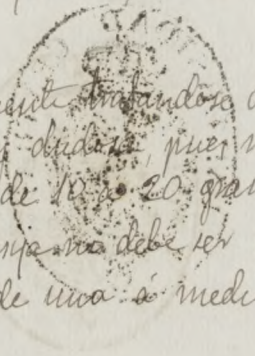 tratandose
dudosa, pues
de 10 a 20 gra
no debe ser
de una á medi